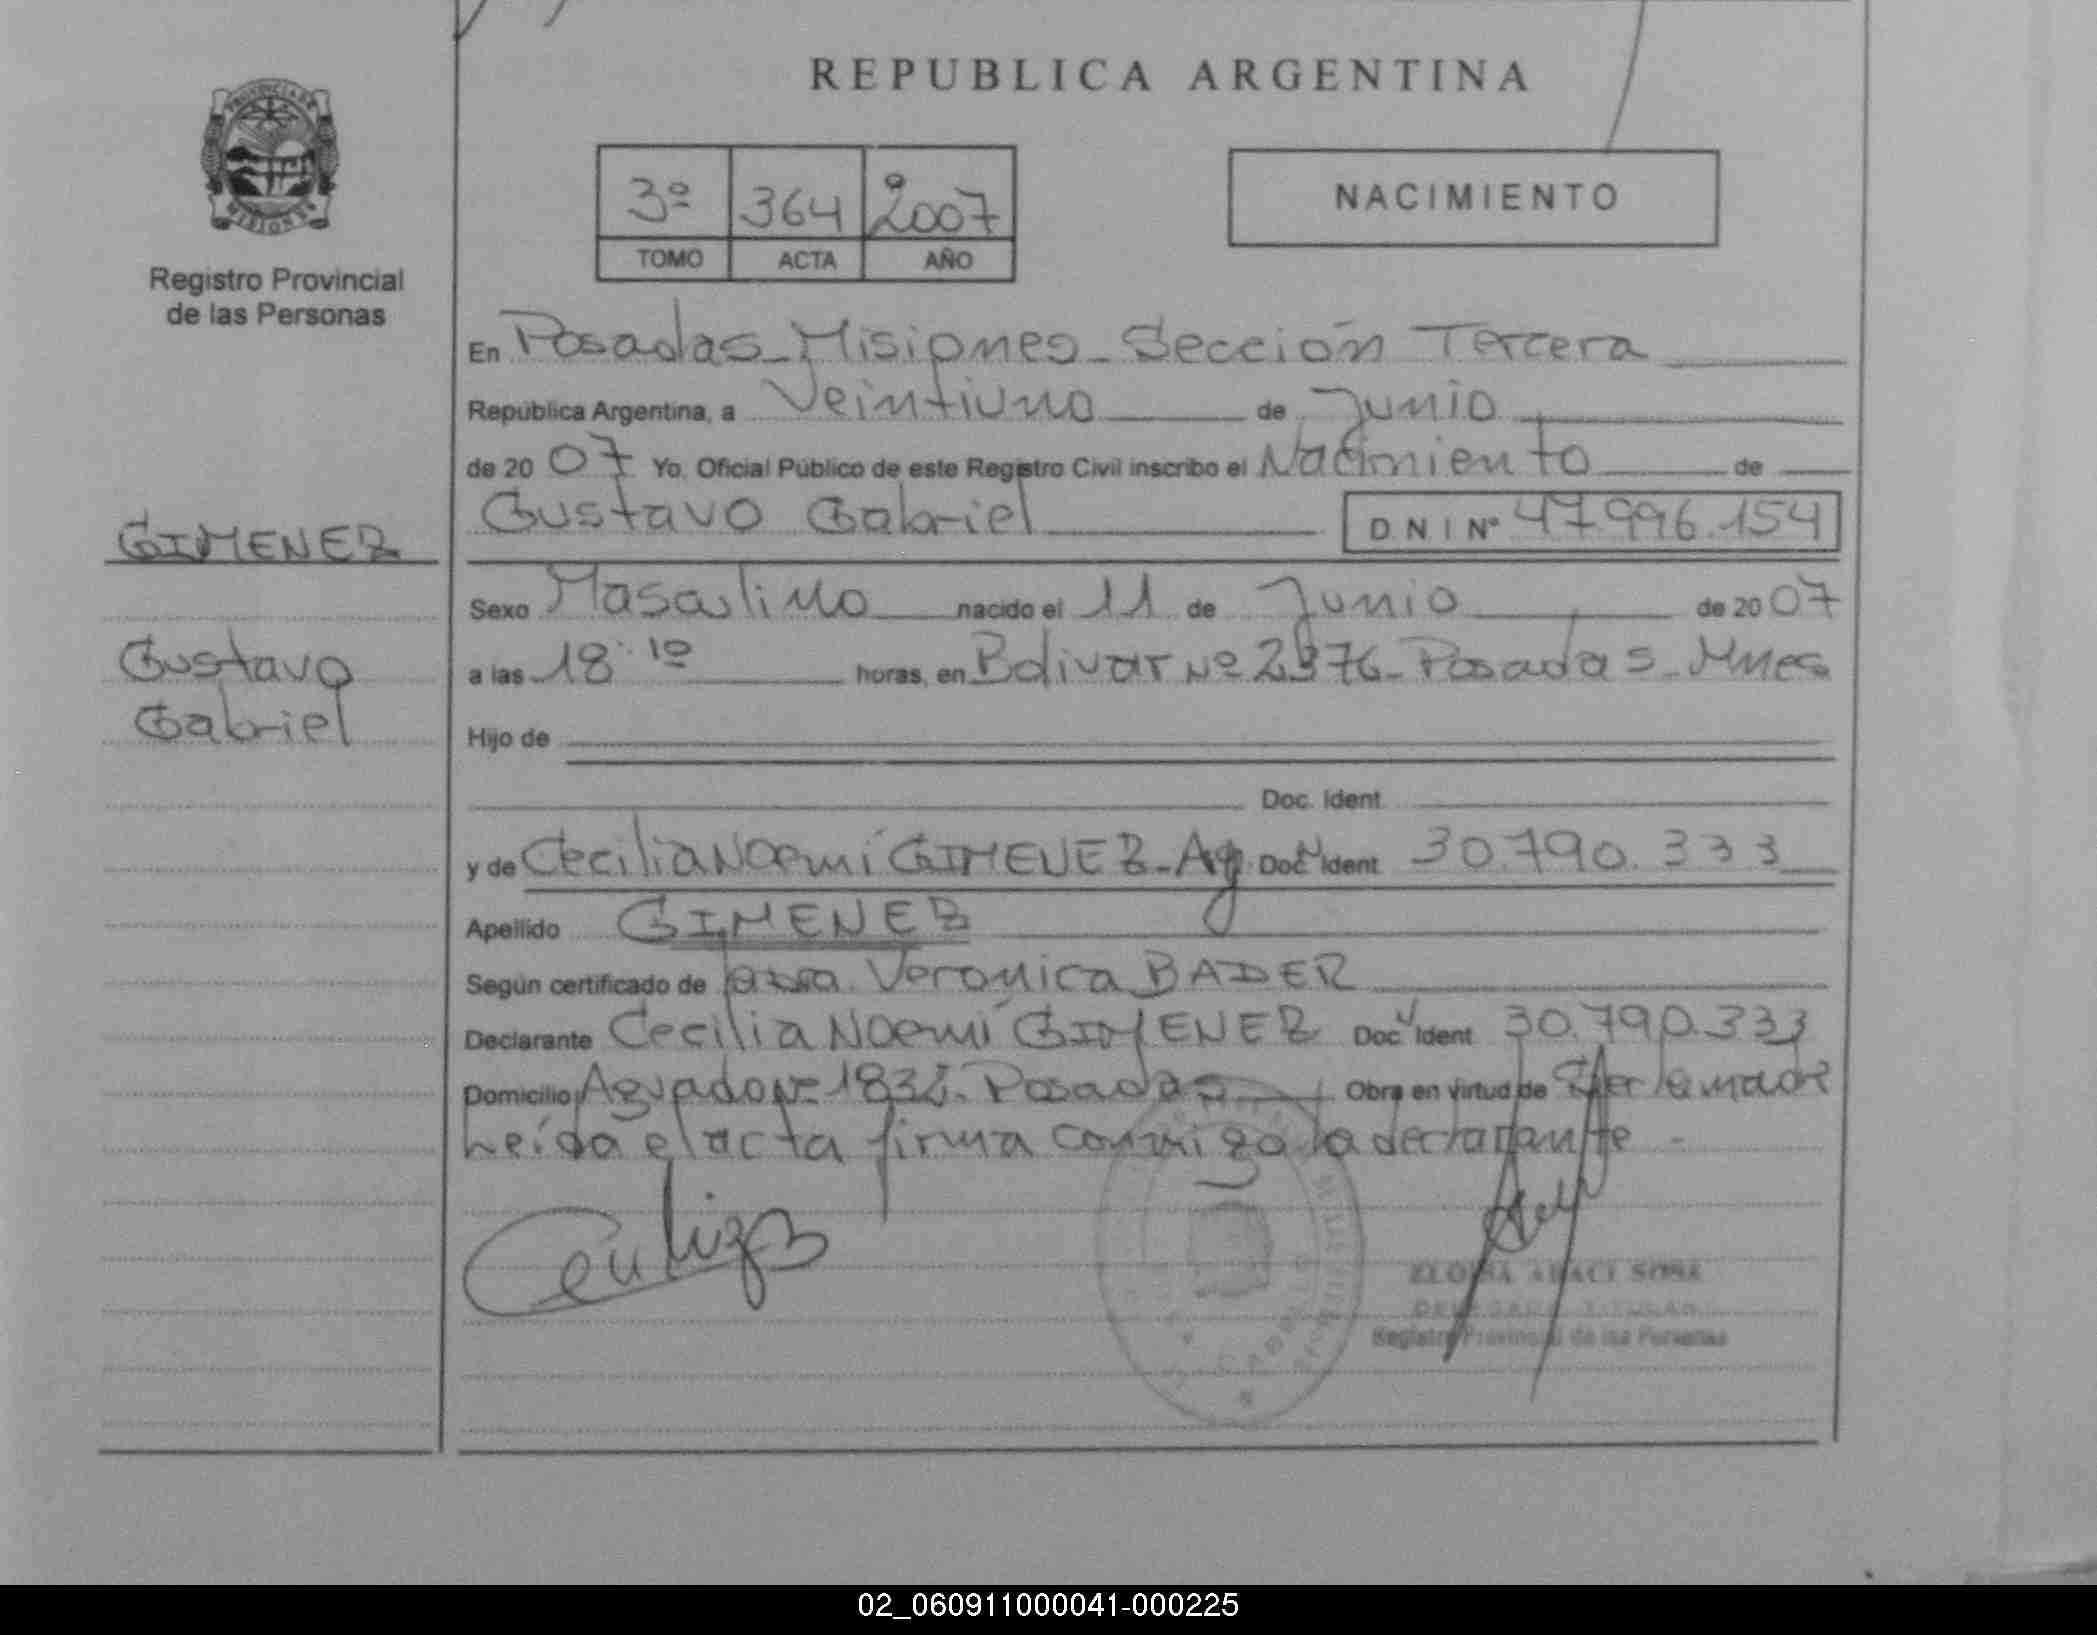 REPUBLICA ARGENTINA
PROVINCIA DE
MISIONES
Registro Provincial
de las Personas
3º 364 2007
TOMO ACTA AÑO
NACIMIENTO
En Posadas_Misiones_Sección Tercera
República Argentina, a Veintiuno de Junio
de 20 07 Yo. Oficial Público de este Registro Civil inscribo el Nacimiento de
Gustavo Gabriel D N I Nº 47.996.154
GIMENEZ
Sexo Masculino nacido el 11 de Junio de 20 07
Gustavo
Gabriel
a las 18:10 horas, en Bolivar Nº Posadas_Mnes
Hijo de
Doc. Ident.
y de Cecilia Noemí GIMENEZ_Ag Doc Ident. 30.790.333
Apellido GIMENEZ
Según certificado de Veronica BADER
Declarante Cecilia Noemí GIMENEZ Doc Ident. 30.790.333
Domicilio Aguado Nº Posadas Obra en virtud de Ser la madre
Leída el acta firma conmigo la declarante -
ELOISA ARACI SOSA
DELEGADA TITULAR
Registro Provincial de las Personas
02_060911000041-000225